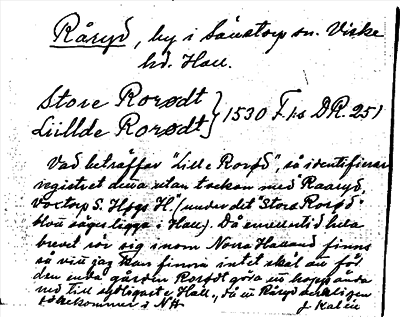 Råryd, by i Sånstorp sn. Viske
hd. Hall.
Store Rorødt
Liillde Rorødt } 1530 F.Is DR. 251
Vad beträffar "Lille Rorød", så identifierar
registret denna utan tvekan med Raaryd,
Vortorp S. Høgs H. (under det "Store Rorød"
blott säges ligga i Hall). Då emellertid hela
brevet rör sig inom Norra Halland finns
så vitt jag kan finna intet skäl att för
den enda gården Rorødt göra ett hopp ända
ned till sydligaste Hall., då ett Råryd verkligen
förekommer i NH.
J. Kalén